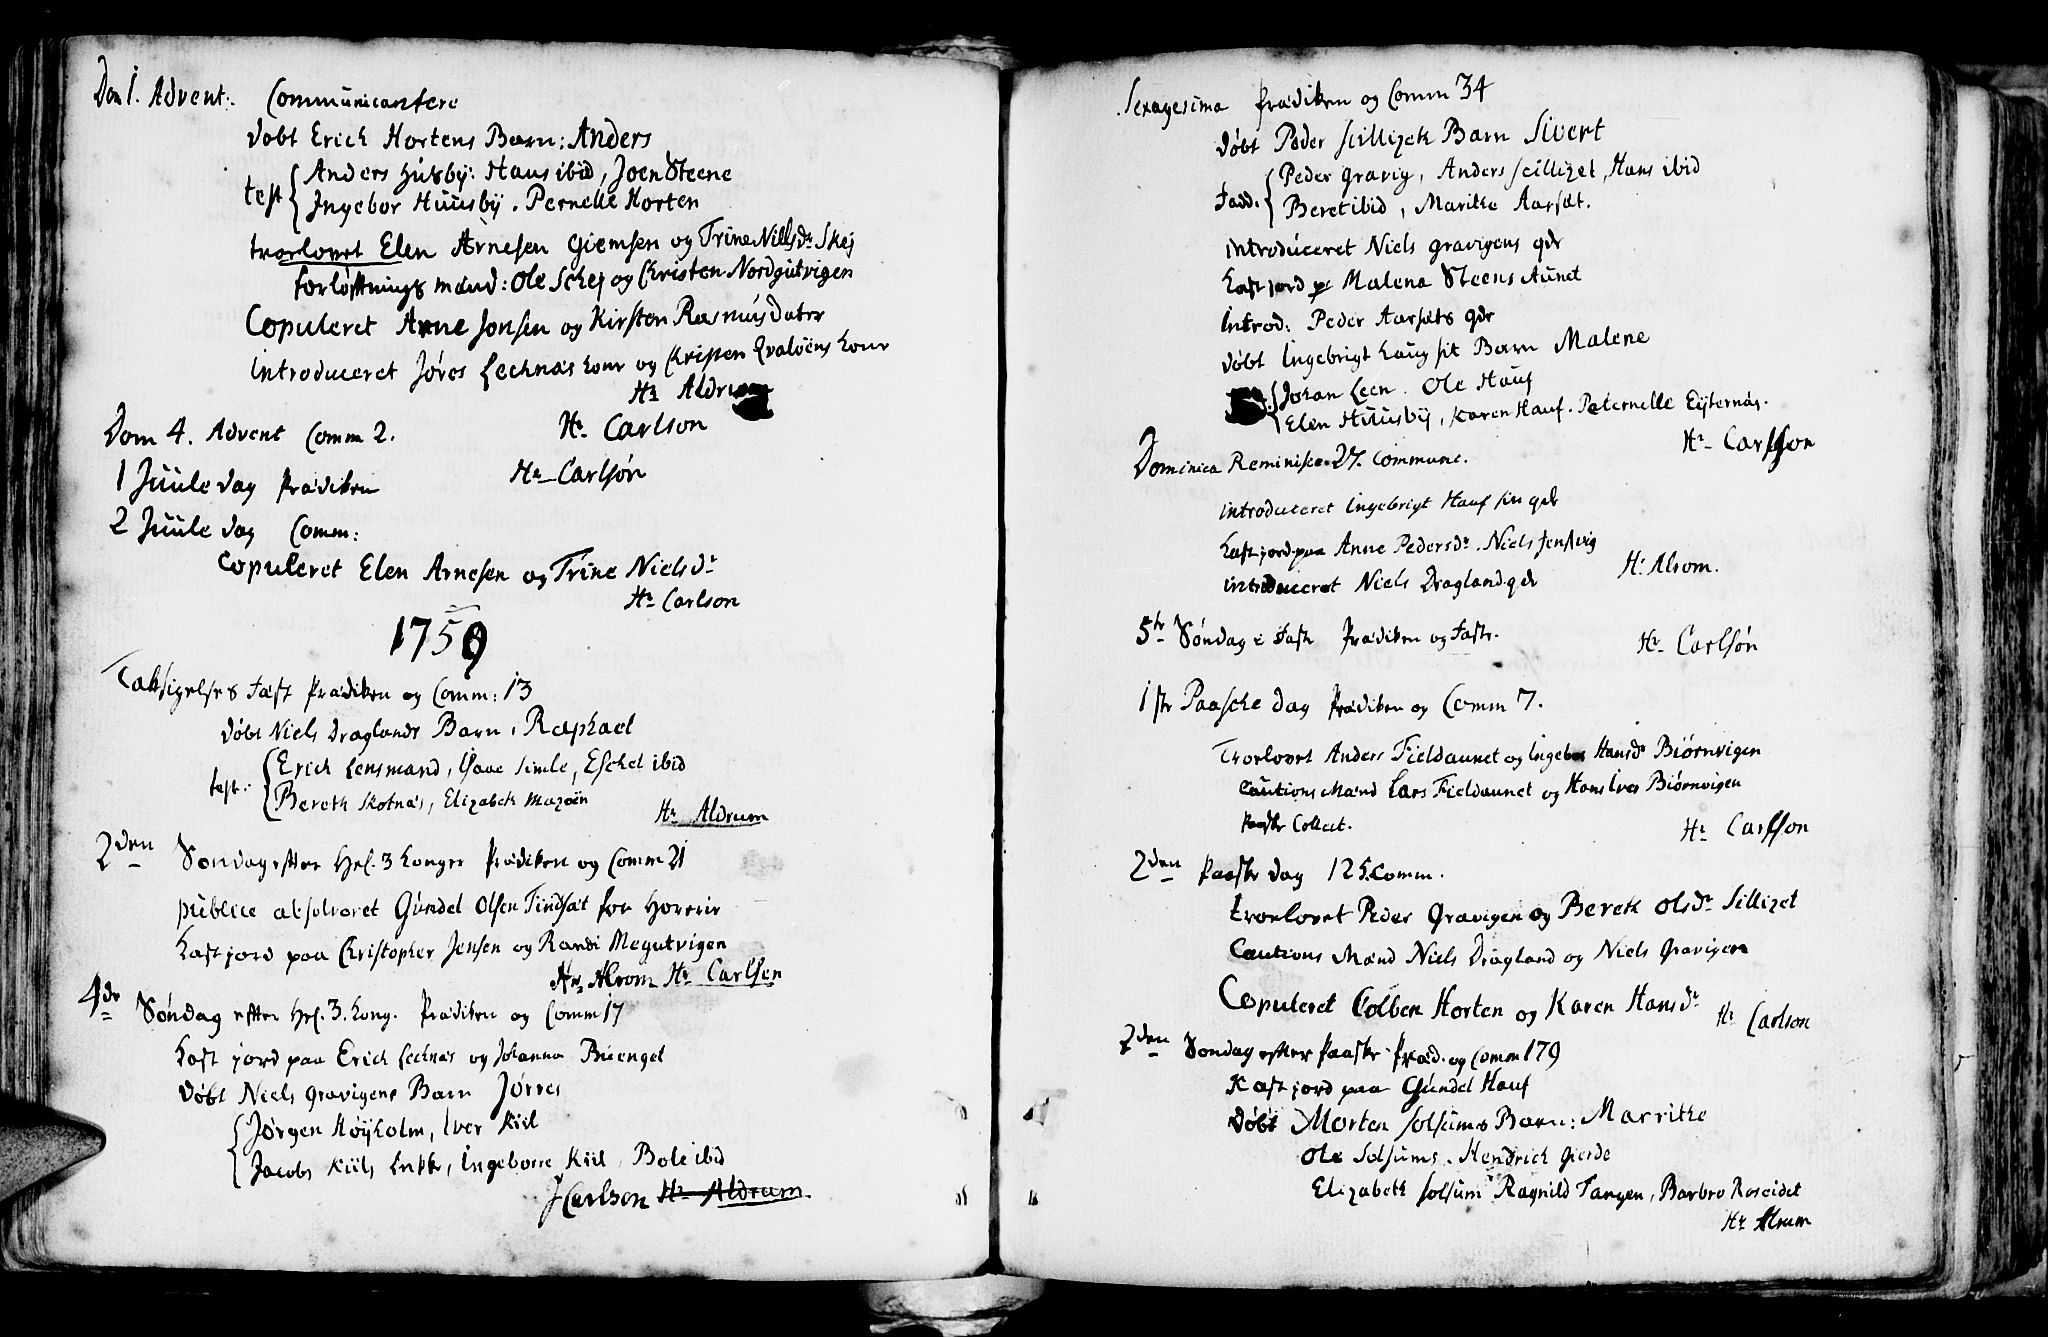 Dom 1. Advent: Communicantere
døbt Erich Hortens Barn: Anders
test Anders Husby: Hans ibid, Joen Steene
Ingebor Huusbÿ. Pernelle Horten
trorlovet Elen Arnesen Giemsen og Trine Nillsdr Skej
forløftnings mænd: Ole Schej og Christen Nordgutvigen
Copuleret Arne Jonsen og Kirsten Rasmusdater
introduceret Jøres Lecknæs konr og Christen Qvaløens konr
Hr Aldrum
Dom 4. Advent Comm 2. Hr. Carlson
1 Juule dag Prædiken Hr Carlsøn
2 Juule dag Comm:
Copuleret Elen Arnesen og Trine Nielsdr
Hr Carlson
1759
Taksigelses Fæst Prædiken og Comm: 13
døbt Niels Draglands Barn, Raphael
test: Erich Lensmand, Isaac Simle, Eschel ibid
Bereth Skotnæs, Elizabeth Mazøin
Hr Aldrum
2den Søndag efter Hel. 3 Konger Prædiken og Comm 21
publice absolveret Gundel Olsen Tindsæt for Horerie
Kast jord paa Christopher Jensen og Randi Megutvigen
Hr Alrom Hr Carlsen
4de Søndag efter Hel. 3. Kong. Prædiken og Comm 17
Kast jord paa Erich Lecknæs og Johanna Buengel
døbt Niels Gravigens Barn Jørres
Jørgen Høÿholm, Iver Kiil
Jacobs Kiils Enke, Ingeborre Kiil, Bole ibid
H Carlson Hr Aldrum
Sexagesima Prædiken og Comm 34
døbt Peder Scillizeth Barn Sivert
Fadd. Peder Gravig, Anders Scillizet, Hans ibid
Beret ibid, Marithe Aarsæt.
introduceret Niels Gravigens qdr
Kast jord pr Malena Steens Aunet
Introd: Peder Aarsæts qdr
døbt Ingebrigt Haugsit Barn Malene
Johan Leen. Ole Hauf
Elen Huusbÿ, Karen Hauf. Peternelle Eÿternæs.
Hr Carlson
Dominica Reminisce. 27. Commune.
introduceret Ingebrigt Hauf sin qdr
Kast jord paa Anne Pedersdr. Niels Jensvig
introduceret Niels Dragland. qdr Hr Alrom.
5te Søndag i Fast Prædiken og Faste. Hr Carlsøn
1ste Paasche dag Prædiken og Comm 7.
Trorlovet Anders Fieldaunet og Ingebor Hansdr Biørnvigen
Cautions Mænd Lars Fieldaunet og Hans Iver Biørnvigen
Paaske Collect. Hr Carlson
2den Paaske dag 125. Comm.
trorlovet Peder Gravigen og Bereth Olsdr Sillizet
Cautions Mænd Niels Dragland og Niels Gravigen
Copuleret Colben Horten og Karen Hansdr
Hr Carlson
2den Søndag efter Paaske Præd. og Comm 179
Kast jord paa Gundel Hauf
døbt Morten Solsums Barn: Marrithe
Ole Solsums. Hendrich Gierde
Elizabeth Solsum Ragnild Tangen, Barbro Roseidet
Hr Alrum